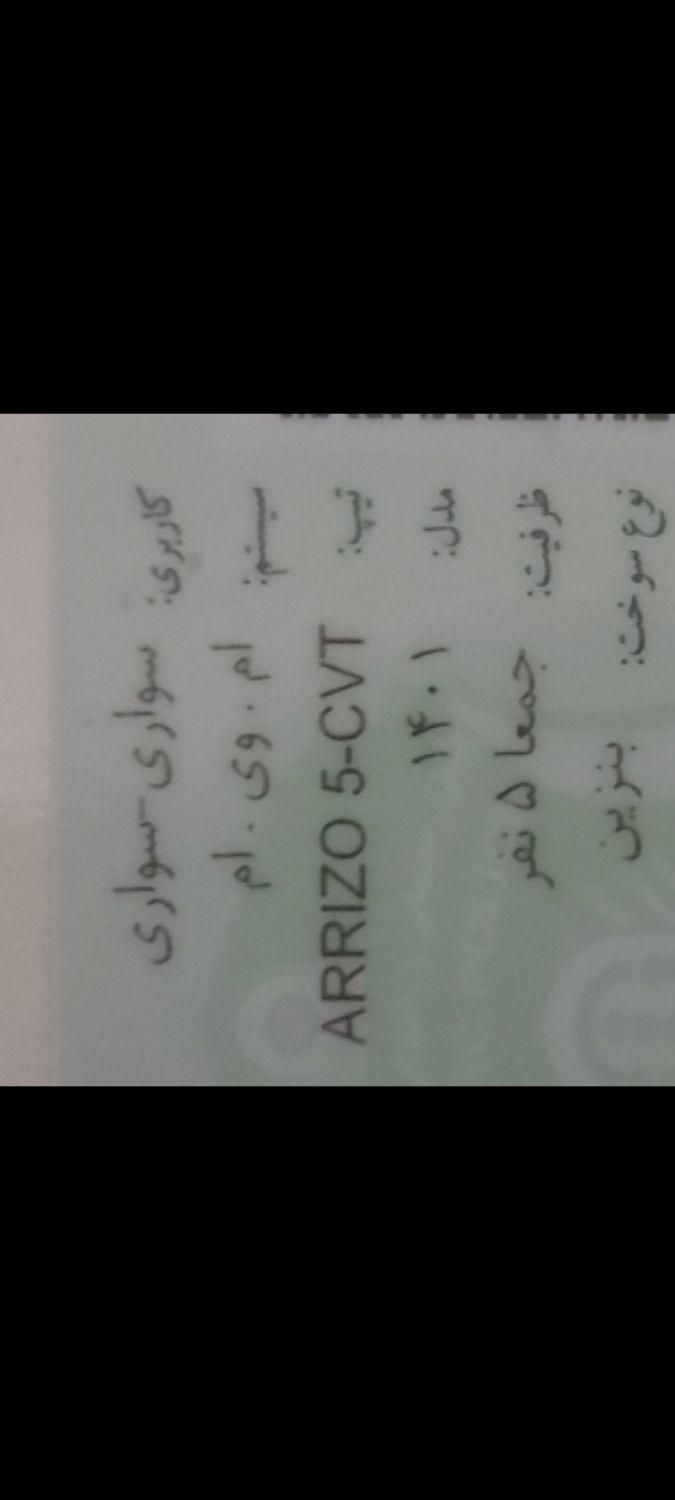 کاربری: سواری-سواری
سیستم: ام . وی . ام
تیپ: ARRIZO 5-CVT
مدل: ۱۴۰۱
ظرفیت: جمعا ۵ نفر
نوع سوخت: بنزین